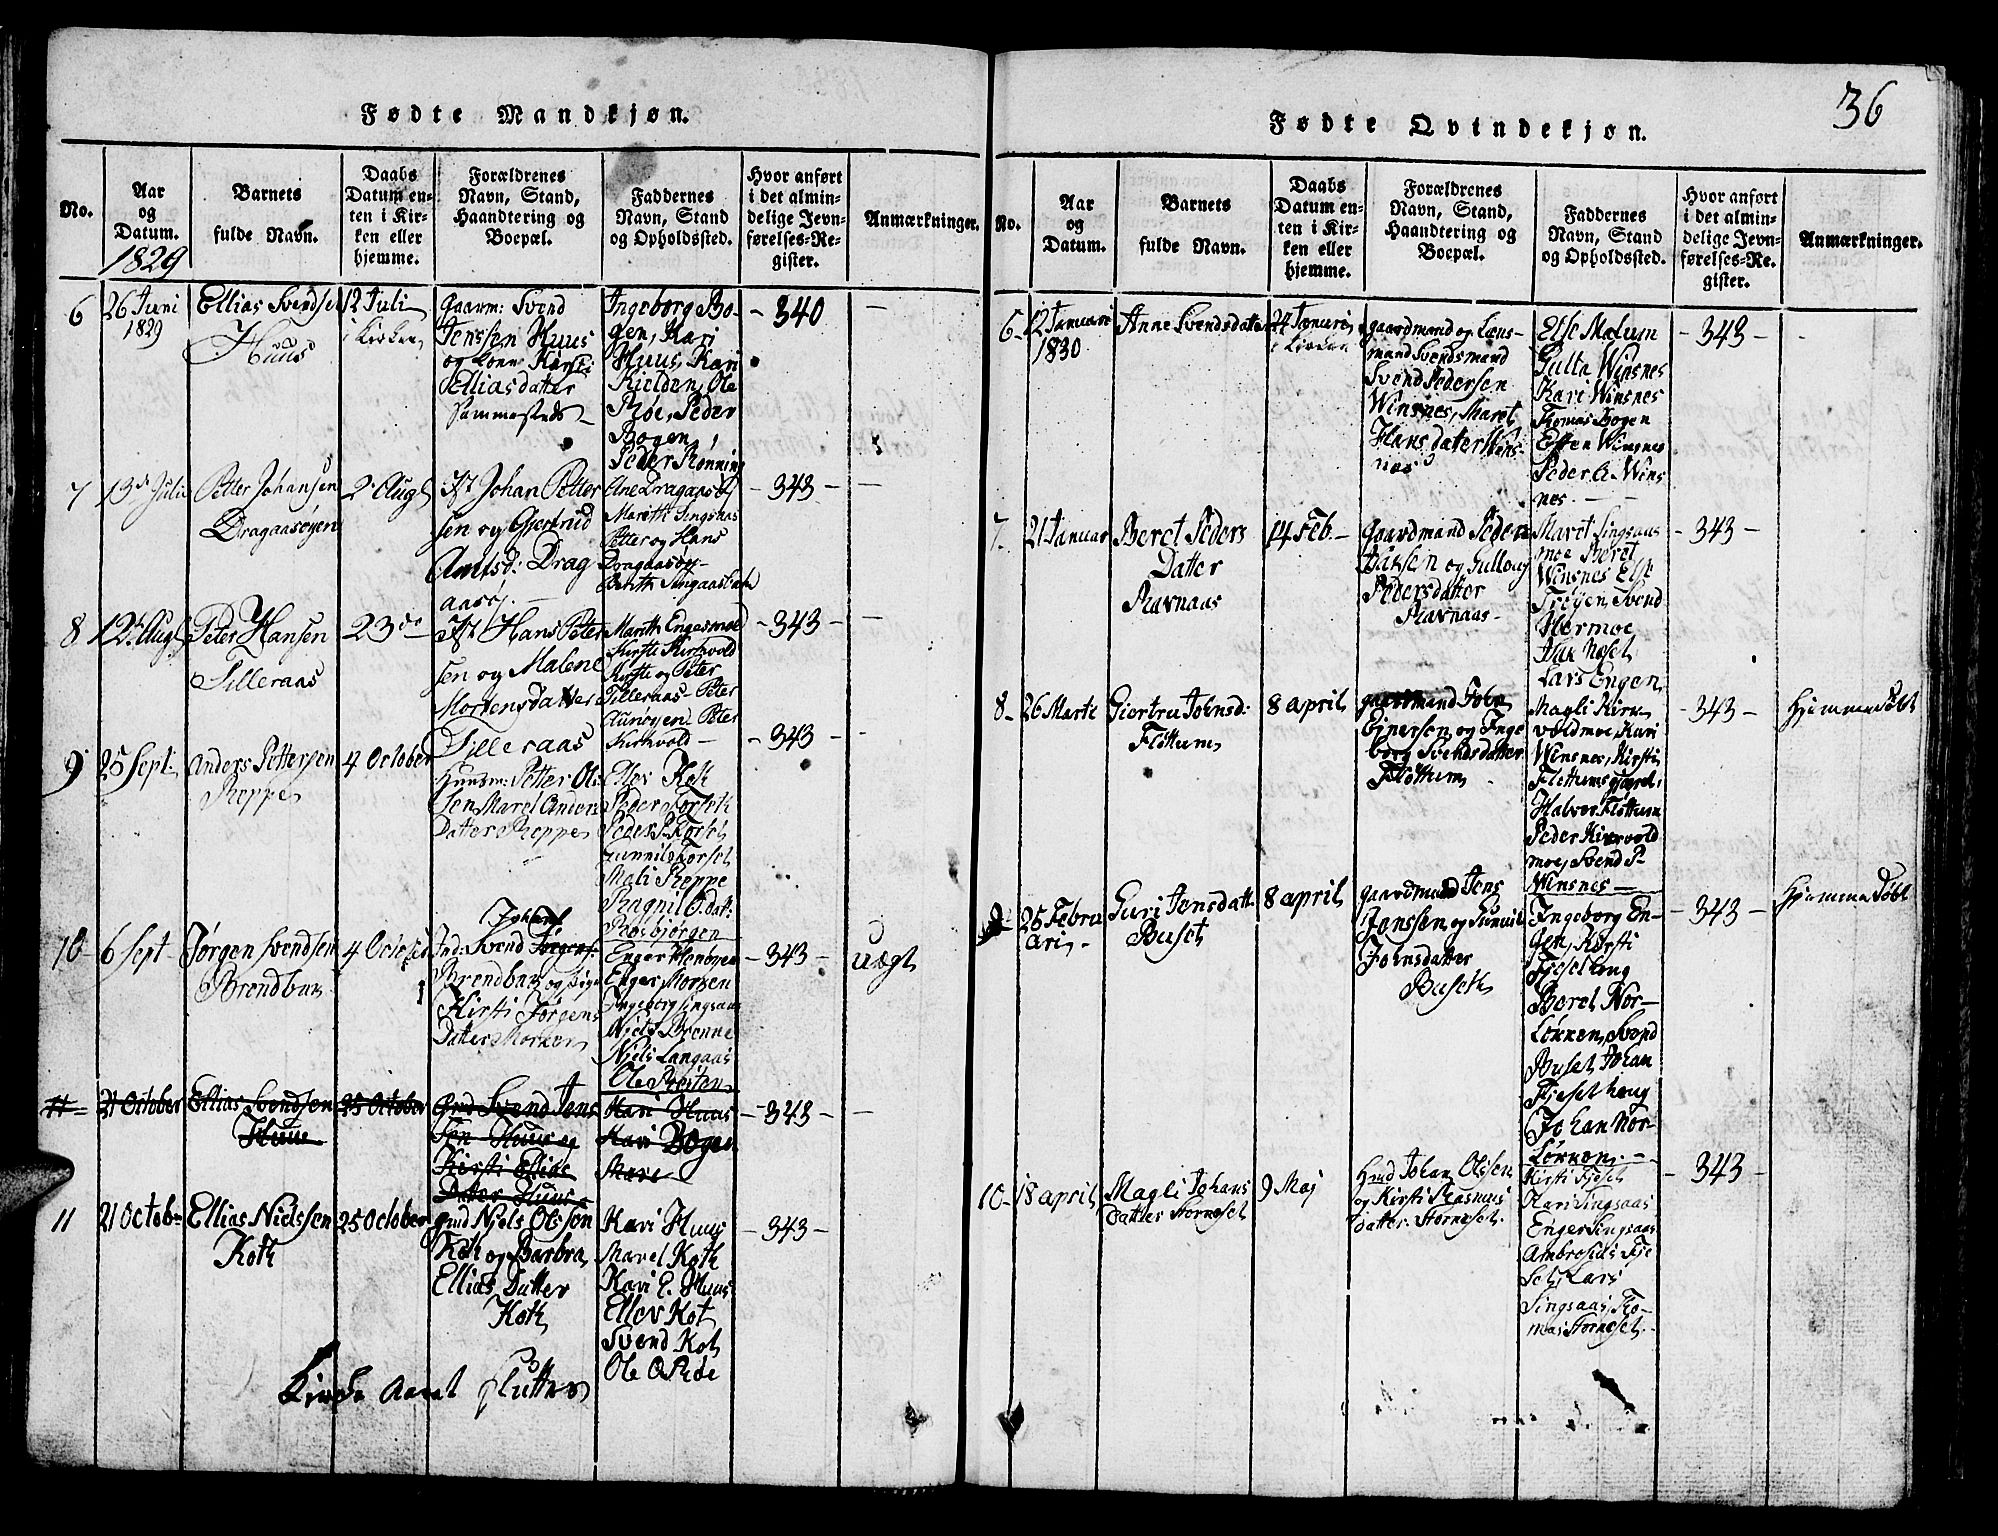 Fødte Mandkjøn.
No.
Aar
og
Datum.
1829
Barnets
fulde Navn.
Daabs
Datum en-
ten i Kir-
ken eller
hjemme.
Forældrenes
Navn, Stand,
Haandtering og
Boepæl.
Faddernes
Navn, Stand
og Opholdssted.
Hvor anført
i det almin-
delige Jevn-
førelses-Re-
gister.
Anmærkninger.
6
26 Juni
1829
Ellias Svendsen
Huus
12 Juli
i Kirken
Gaarm: Svend
Jenssen Huus
og kone Kirsti
Elliasdatter
Sammesteds
Ingeborg Bo-
gen, Kari
Huus, Kari
Kielden, Ole
Røe, Peder
Bogen,
Peder Rønning
- 340
-
7
13de Juli
Petter Johansen
Dragaasøyen
2 Augt
Johan Petter
sen og Gjertrud
Arntsd: Drag
aasøj. -
Ane Dragaasøj
Marith Singsaas
Petter og Hans
Dragaasøy-
Berith Singaasbak
- 343 -
-
8
12 Augt
Peter Hansen
Tilleraas
23de
Hans Peter
sen og Malene
Mortensdatter
Tilleraas
Marith Engesmoe
Kirste Kirkvold
Kirste og Peter
Tilleraas- Peter
Aunøyen Peter
Kirkvold -
- 343 -
-
9
25 Sept
Anders Pettersen
Reppe
4 October
Huusm: Petter Ols
sen Maret Anders
Datter Reppe
Eller Kok
Peder Forsek
Peder P. Forset
Gunnil Forset
Mali Reppe
Ragnil O.datt:
Roesbjørgen
- 343 -
10
6 Sept
Jørgen Svendsen
Brendbur
4 October
Johans
Ind: Svend Jørgens
Brendbur og Pige
Kirsti Jørgens
Datter Morken
Enger Henøyen
Enger Morken
Ingeborg Singsaas
Niels Brenne
Niels Langaas
Ole Reiten
- 343 -
uægt
11 =
21 October
Ellias Svendsen
Huus
25 October
Gmd Svend Jens
sen Huus og
Kirsti Ellias
Datter Huus
Kari Huus
Kari Bogen
Mare
- 343 -
-
11
21 Octobr
Ellias Nielssen
Koth
25 October
Gmd Niels Olsson
Kok og Barbra
Ellias Datter
Koth
Kari Huus
Marel Koth
Kari E. Huus
Ellev Kot
Svend Kot
Ole O Røe
- 343 -
Kirke Aaret Slutter
Fødte Qvindekjøn.
36
No.
Aar
og
Datum.
Barnets
fulde Navn.
Daabs
Datum en-
ten i Kir-
ken eller
hjemme.
Forældrenes
Navn, Stand,
Haandtering og
Boepæl.
Faddernes
Navn, Stand
og Opholdssted.
Hvor anført
i det almin-
delige Jevn-
førelses-Re-
gister.
Anmærkninger.
6
12 Januari
1830
Anne Svendsdatter
24 Januri
i Kirken
gaardmand og Læns-
mand Svendsmand
Svend Pedersen
Winsnes, Maret
Hansdater Wins-
nes
Else Malum
Gulla Winsnes
Kari Winsnes
Thomas Bogen
Effen Winsnes
Peder A. Wins
nes. -
- 343 -
7
21 Januar
Beret Peders
Datter
Ravnaas
14 Feb.
Gaardmand Peder
Isaksen og Gulloug
Pedersdatter
Ravnaas -
Maret Singsaas
moe Beret
Winsnes Else
Trøyen, Svend
Hermoe
Isak Moset
Lars Engen
- 343 -
8
26 Marti
Giertru Johnsd:
Fløttum
8 april
gaardmand John
Einersen og Inge
borg Svendsdatter
Fløttum
Magli Kirk
voldmoe, Kari
Winsnes, Kirsti
Fløttumsgjøgrel:
Halvor Fløttum
Peder Kirkvold
moe, Svend P.
Winsnes -
- 343 -
Hjemmedøbt
9
25 Febru
ari -
Guri Jensdatt
Buset
8 april
gaardmand Jens
Jonssen og Gunnil
Johnsdatter
Busetk
Ingeborg En-
gen, Kirsti
Fjeselhoug
Beret Nor-
Løkken, Svend
Buset Johan
Fjeset houg
Johan Nor-
Løkken. -
- 343 -
Hjemmedøbt
10
18 april
Magli Johans
Datter Storneset
9 Maj
Hmd Johan Olssen
og Kirsti Rasmus
datter: Storneset.
Kirsti Fjeset
Kari Singsaas
Enger Singsaas
Ambrosius Fje
set, Lars
Singsaas, Tho-
mas Storneset.
- 343 -